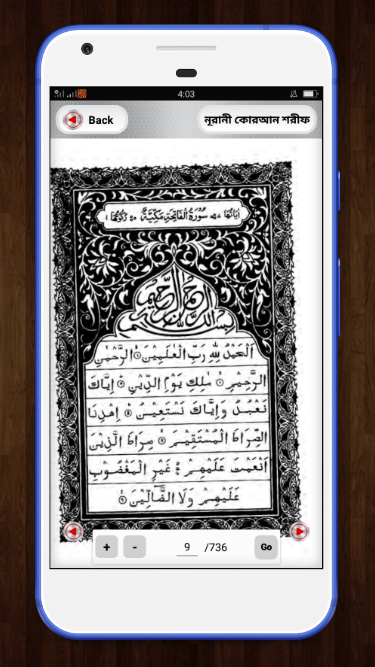 4:03
Back
নূরানী কোরআন শরীফ
سُورَةُ الْفَاتِحَةِ مَكِّيَّةٌ
بِسْمِ اللهِ الرَّحْمٰنِ الرَّحِيْمِ
اَلْحَمْدُ لِلّٰهِ رَبِّ الْعٰلَمِيْنَ ۝ الرَّحْمٰنِ
الرَّحِيْمِ ۝ مٰلِكِ يَوْمِ الدِّيْنِ ۝ اِيَّاكَ
نَعْبُدُ وَاِيَّاكَ نَسْتَعِيْنُ ۝ اِهْدِنَا
الصِّرَاطَ الْمُسْتَقِيْمَ ۝ صِرَاطَ الَّذِيْنَ
اَنْعَمْتَ عَلَيْهِمْ غَيْرِ الْمَغْضُوْبِ
عَلَيْهِمْ وَلَا الضَّآلِّيْنَ ۝
+ - 9 /736 Go